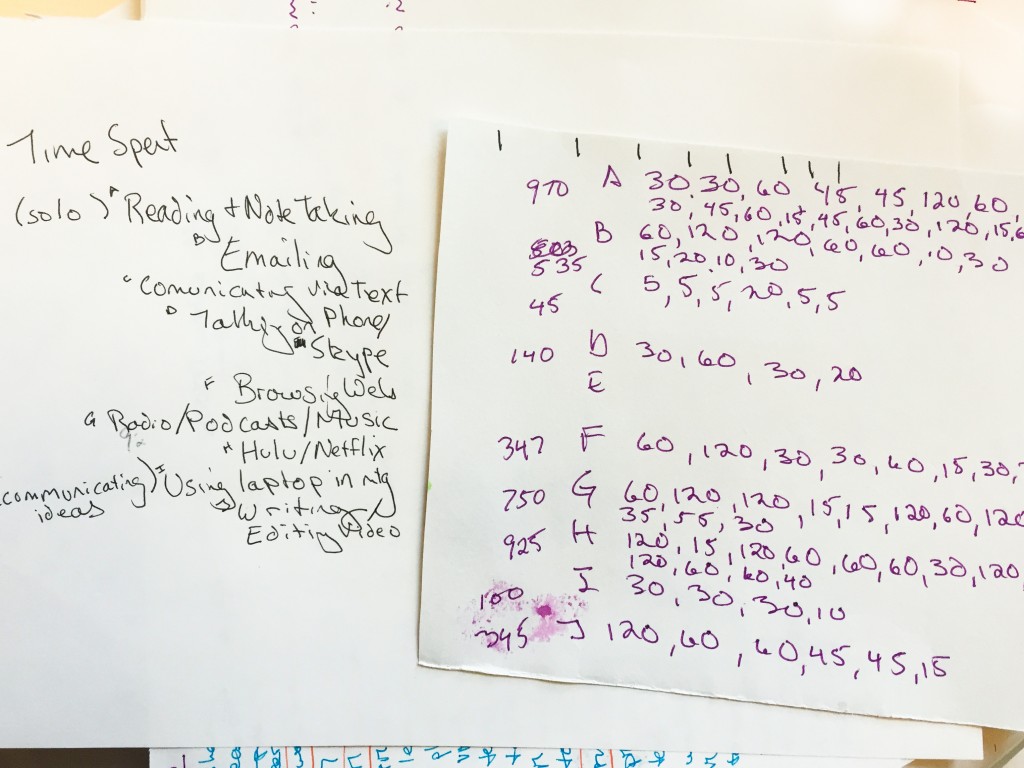 Time Spent
(solo) A Reading + Note Taking
B Emailing
C Comunicating via Text
D Talking on Phone/
Skype
F Browsing Web
G Radio/Podcasts/Music
H Hulu/Netflix
(communicating ideas) I Using laptop in mtg
J Writing
Editing Video
970 A 30, 30, 60 45, 45, 120, 60,
30, 45, 60, 15, 45, 60, 30, 120, 15, 6
B 60, 120, 120, 60, 60, 10, 30
535 15, 20, 10, 30
45 C 5, 5, 5, 20, 5, 5
140 D 30, 60, 30, 20
E
347 F 60, 120, 30, 30, 60, 15, 30,
750 G 60, 120, 120, 15, 15, 120, 60, 120
35, 55, 30
925 H 120, 15, 120, 60, 60, 60, 30, 120,
120, 60, 60, 40
100 I 30, 30, 30, 10
345 J 120, 60, 60, 45, 45, 15